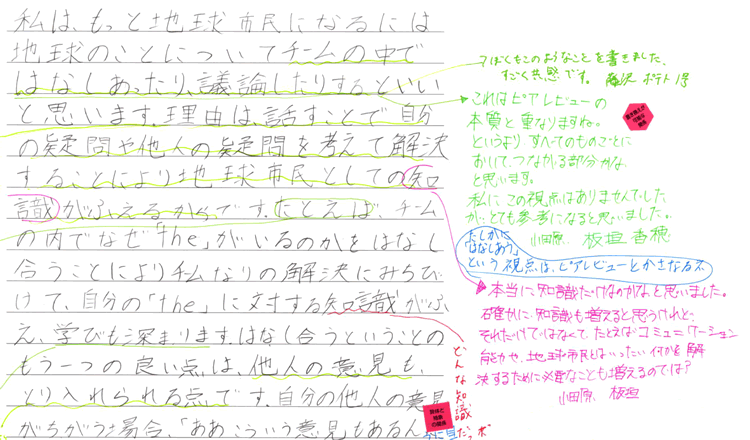 私は、もっと地球市民になるには
地球のことについてチームの中で
はなしあったり、議論したりするといい
と思います。理由は、話すことで自分
の疑問や他人の疑問を考えて解決
することにより地球市民としての知
識がふえるからです。たとえば、チーム
の内でなぜ「the」がいるのかをはなし
合うことによりチームなりの解決にみちび
けて、自分の「the」に対する知識がふ
え、学びも深まります。はなし合うということの
もう一つの良い点は、他人の意見も、
とり入れられる点です。自分の他人の意見
がちがう場合、「ああこういう意見もあるん
ぼくもこのようなことを書きました、
すごく共感です。 藤沢 ポテト1号
これはピアレビューの
本質と重なりますね。
というより すべてのものごとに
おいて、つながる部分かな
と思います。
私にこの視点はありませんでした
が、とても参考になると思いました。
小田原 板垣香穂
たしかに
「はなしあう」
という視点は、ピアレビューとかさなるネ
本当に知識だけなのかなと思いました。
確かに、知識も増えると思うけれど、
それだけではなくて、たとえばコミュニケーション
能力や、地球市民とはいったい何かを解
決するために必要なことも増えるのでは?
小田原 板垣
どんな知識